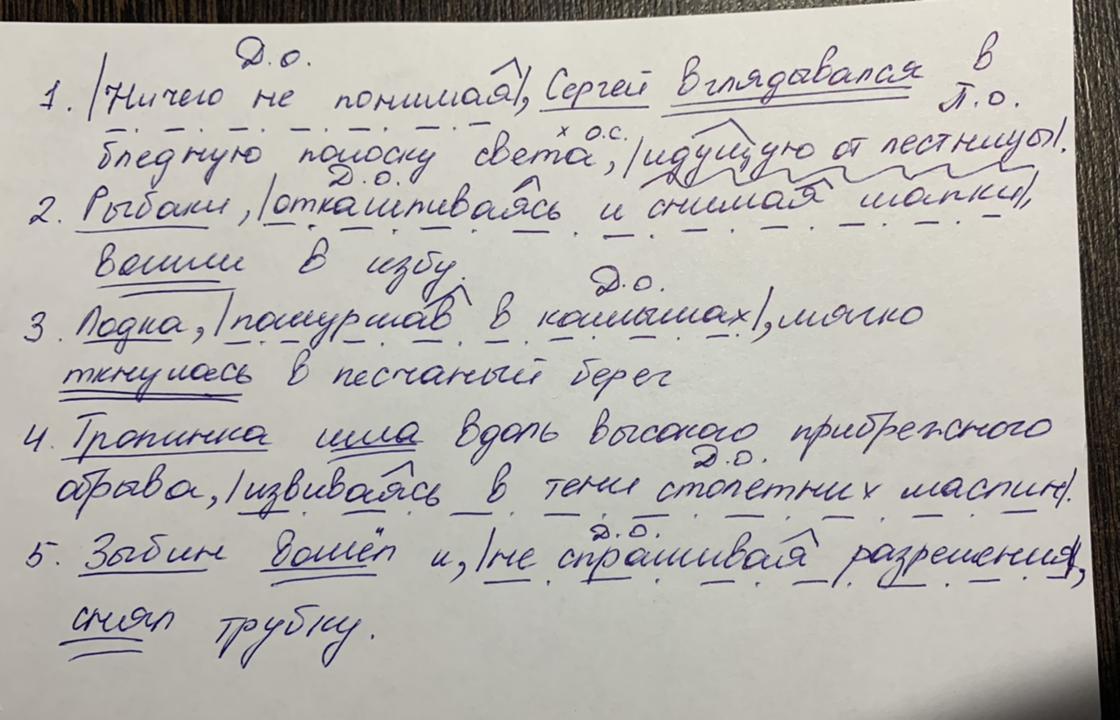 Д.О.
1. /Ничего не понимая/, Сергей вглядывался в
х о.с. П.О.
бледную полоску света, /идущую от лестницы/.
Д.О.
2. Рыбаки, /откашливаясь и снимая шапки/,
вошли в избу.
Д.О.
3. Лодка, /пошуршав в камышах/, мягко
ткнулась в песчаный берег
4. Тропинка шла вдоль высокого прибрежного
Д.О.
обрыва, /извиваясь в тени столетних маслин/.
Д.О.
5. Зыбин вошёл и, /не спрашивая разрешения/,
снял трубку.